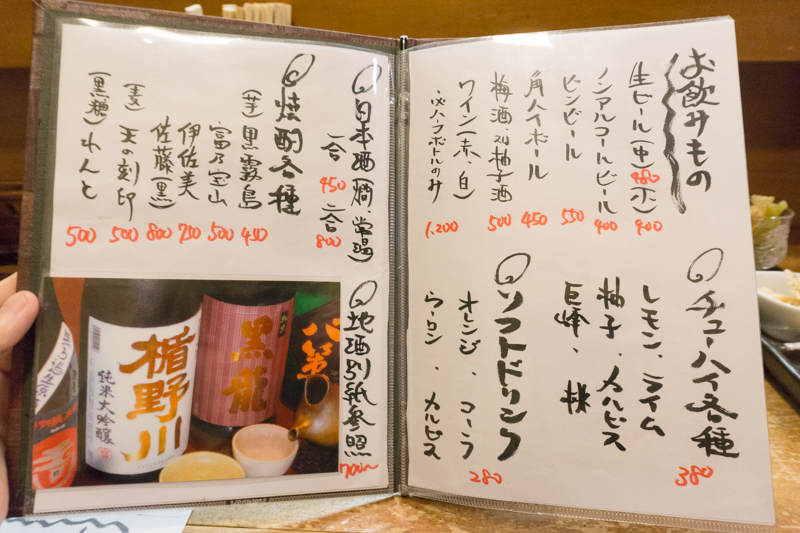 お飲みもの
生ビール(中)480(小)400
ノンアルコールビール 400
ビンビール 550
角ハイボール 450
梅酒・柚子酒 500
ワイン(赤・白)
・ハーフボトルのみ 1,200
チューハイ各種 380
レモン、ライム
柚子、カルピス
巨峰、桃
ソフトドリンク 280
オレンジ、コーラ
ウーロン、カルピス
日本酒(燗・常温)
一合 450 二合 800
焼酎各種
(芋)黒霧島 450
富乃宝山 500
伊佐美 750
佐藤(黒) 800
(麦)天の刻印 500
(黒糖)れんと 500
地酒別紙参照 700〜
楯野川
純米大吟醸
黒龍